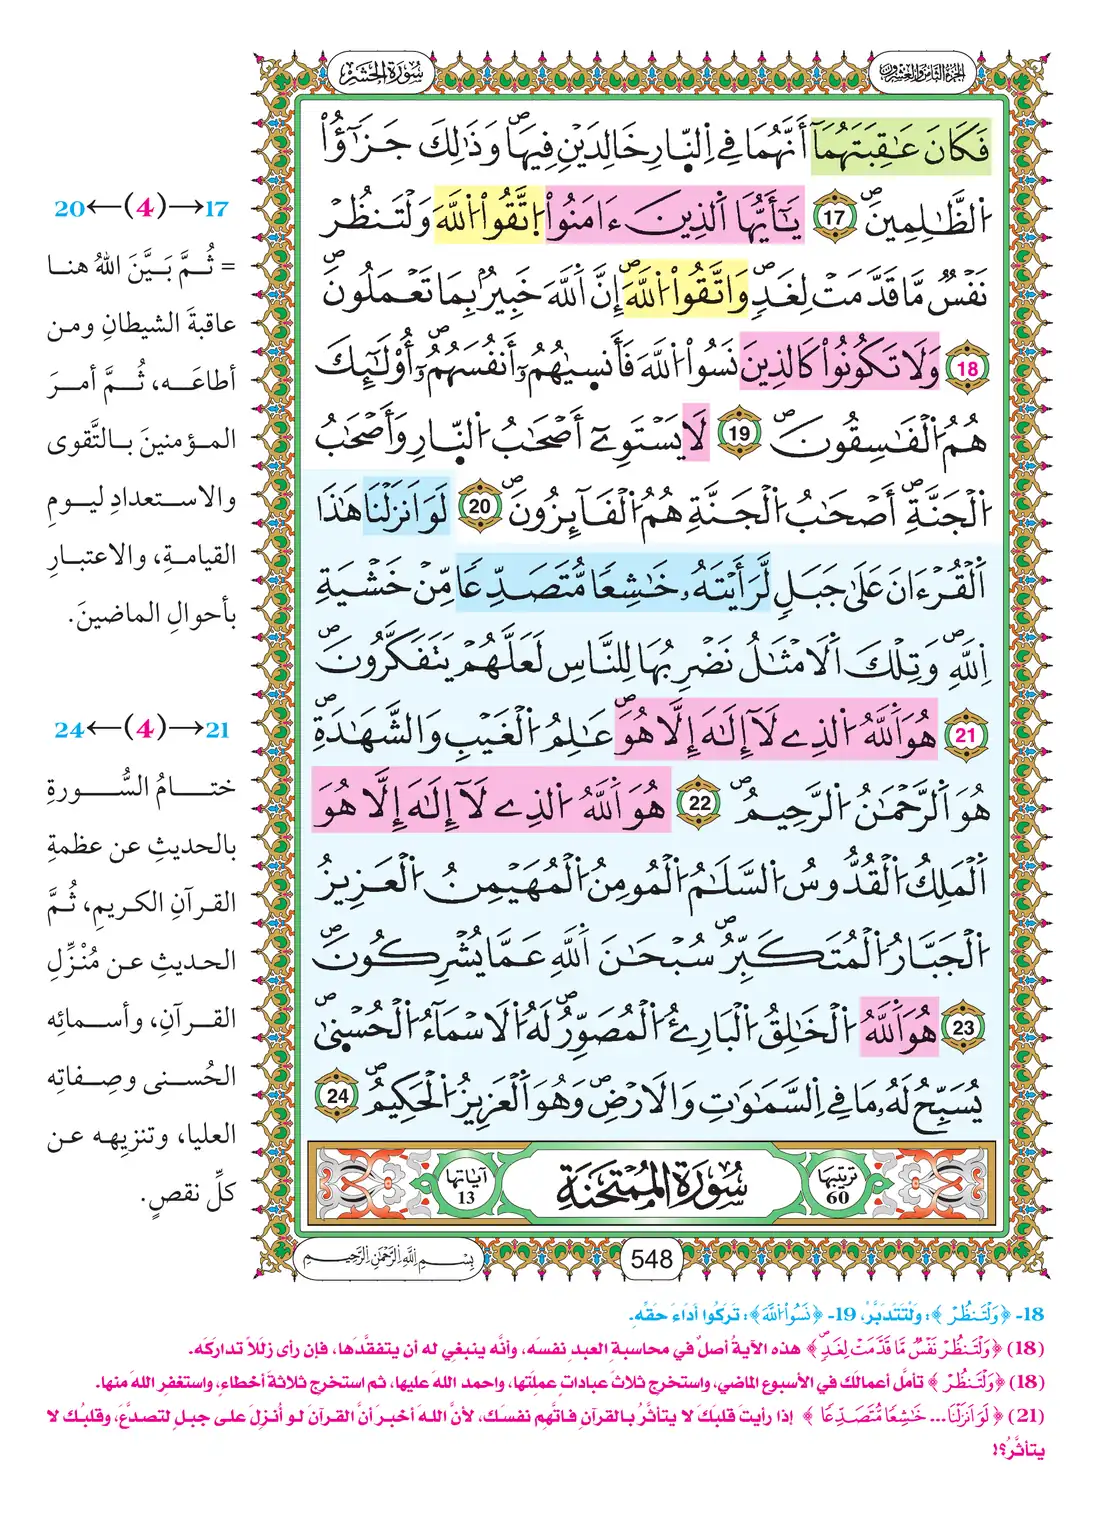 الجزء الثامن والعشرون
سُورَةُ الحَشْرِ
فَكَانَ عَٰقِبَتَهُمَآ أَنَّهُمَا فِے اِ۬لنّ۪ارِ خَٰلِدَيْنِ فِيهَاۖ وَذَٰلِكَ جَزَٰٓؤُاْ
اُ۬لظَّٰلِمِينَۖ 17 يَٰٓأَيُّهَا اَ۬لذِينَ ءَامَنُواْ اُ۪تَّقُواْ اُ۬للَّهَ وَلْتَنظُرْ
نَفْسٞ مَّا قَدَّمَتْ لِغَدٖۖ وَاتَّقُواْ اُ۬للَّهَۖ إِنَّ اَ۬للَّهَ خَبِيرُۢ بِمَا تَعْمَلُونَۖ
18 وَلَا تَكُونُواْ كَالذِينَ نَسُواْ اُ۬للَّهَ فَأَنس۪يٰهُمُۥٓ أَنفُسَهُمُۥٓۖ أُوْلَٰٓئِكَ
هُمُ اُ۬لْفَٰسِقُونَۖ 19 لَا يَسْتَوِےٓ أَصْحَٰبُ اُ۬لنّ۪ارِ وَأَصْحَٰبُ
اُ۬لْجَنَّةِۖ أَصْحَٰبُ اُ۬لْجَنَّةِ هُمُ اُ۬لْفَآئِزُونَۖ 20 لَوَ اَنزَلْنَا هَٰذَا
اَ۬لْقُرْءَانَ عَلَىٰ جَبَلٖ لَّرَأَيْتَهُۥ خَٰشِعاٗ مُّتَصَدِّعاٗ مِّنْ خَشْيَةِ
اِ۬للَّهِۖ وَتِلْكَ اَ۬لَامْثَٰلُ نَضْرِبُهَا لِلنَّاسِ لَعَلَّهُمْ يَتَفَكَّرُونَۖ
21 هُوَ اَ۬للَّهُ اُ۬لذِے لَآ إِلَٰهَ إِلَّا هُوَۖ عَٰلِمُ اُ۬لْغَيْبِ وَالشَّهَٰدَةِۖ
هُوَ اَ۬لرَّحْمَٰنُ اُ۬لرَّحِيمُۖ 22 هُوَ اَ۬للَّهُ اُ۬لذِے لَآ إِلَٰهَ إِلَّا هُوَ
اَ۬لْمَلِكُ اُ۬لْقُدُّوسُ اُ۬لسَّلَٰمُ اُ۬لْمُومِنُ اُ۬لْمُهَيْمِنُ اُ۬لْعَزِيزُ
اُ۬لْجَبَّارُ اُ۬لْمُتَكَبِّرُۖ سُبْحَٰنَ اَ۬للَّهِ عَمَّا يُشْرِكُونَۖ
23 هُوَ اَ۬للَّهُ اُ۬لْخَٰلِقُ اُ۬لْبَارِۓُ اُ۬لْمُصَوِّرُۖ لَهُ اُ۬لَاسْمَآءُ اُ۬لْحُسْن۪يٰ
يُسَبِّحُ لَهُۥ مَا فِے اِ۬لسَّمَٰوَٰتِ وَالَارْضِۖ وَهُوَ اَ۬لْعَزِيزُ اُ۬لْحَكِيمُۖ 24
ترتيبها 60
سُورَةُ المُمْتَحَنَةِ
آياتها 13
548
بِسْمِ اِ۬للَّهِ اِ۬لرَّحْمَٰنِ اِ۬لرَّحِيمِ
17→(4)←20
= ثُمَّ بَيَّنَ اللهُ هنا
عاقبةَ الشيطانِ ومن
أطاعَه، ثُمَّ أمرَ
المؤمنينَ بالتَّقوى
والاستعدادِ ليومِ
القيامةِ، والاعتبارِ
بأحوالِ الماضينَ.
21→(4)←24
ختامُ السُّورةِ
بالحديثِ عن عظمةِ
القرآنِ الكريمِ، ثُمَّ
الحديثِ عن مُنْزِّلِ
القرآنِ، وأسمائِه
الحُسنى وصِفاتِه
العليا، وتنزيهِه عن
كلِّ نقصٍ.
18- ﴿وَلْتَنظُرْ﴾: ولْتَتَدَبَّرْ، 19- ﴿نَسُواْ اُ۬للَّهَ﴾: تَرَكُوا أدَاءَ حَقِّهِ.
(18) ﴿وَلْتَنظُرْ نَفْسٞ مَّا قَدَّمَتْ لِغَدٖۖ﴾ هذه الآيةُ أصلٌ في محاسبةِ العبدِ نفسَه، وأنَّه ينبغي له أن يتفقَّدَها، فإن رأى زللاً تداركَه.
(18) ﴿وَلْتَنظُرْ﴾ تأمَّل أعمالَكَ في الأسبوع الماضي، واستخرج ثلاثَ عباداتٍ عملتَها، واحمد اللهَ عليها، ثم استخرج ثلاثةَ أخطاءٍ، واستغفرِ اللهَ منها.
(21) ﴿لَوَ اَنزَلْنَا... خَٰشِعاٗ مُّتَصَدِّعاٗ﴾ إذا رأيتَ قلبَكَ لا يتأثَّرُ بالقرآنِ فاتَّهِم نفسَك، لأنَّ اللهَ أخبرَ أنَّ القرآنَ لو أُنزِلَ على جبلٍ لتصدَّعَ، وقلبُك لا
يتأثَّرُ؟!